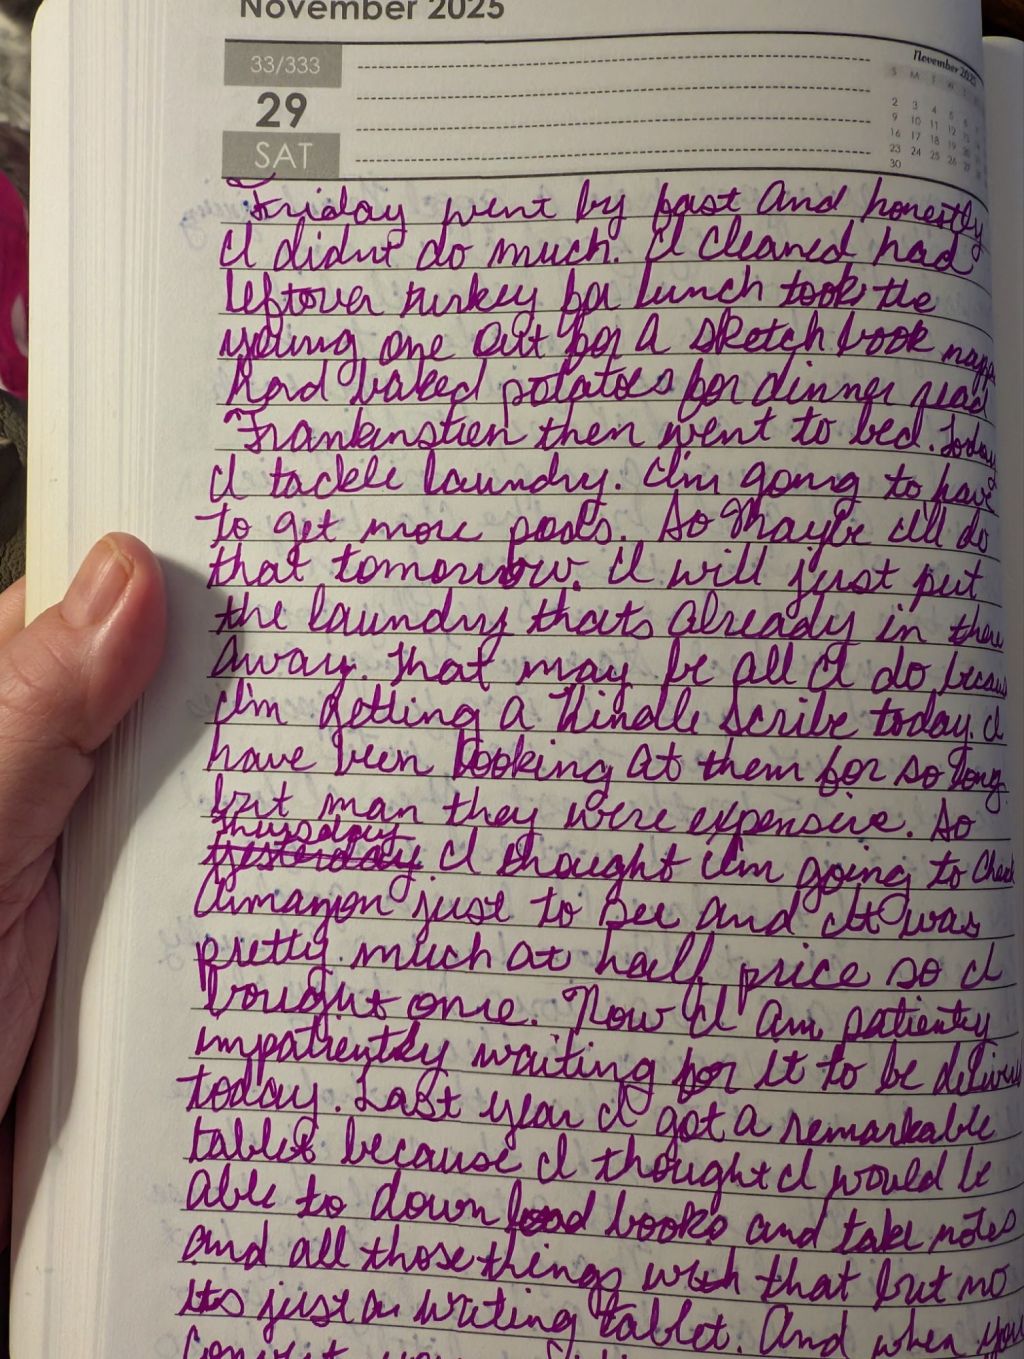 November 2025
33/333
29
SAT
November 2025
S M T W T
2 3 4 5 6
9 10 11 12 13
16 17 18 19 20
23 24 25 26 27
30
Friday went by fast and honestly
I didnt do much. I cleaned had
leftover turkey for lunch took the
young one out for a sketch book
had baked potatoes for dinner read
Frankinstien then went to bed. Today
I tackle laundry. Im going to have
to get more pods. So Maybe Ill do
that tomorrow. I will just put
the laundry thats already in there
away. That may be all I do becaus
Im getting a Kindle Scribe today. I
have been looking at them for so long
but man they were expensive. So
Thursday
yesterday I thought Im going to check
Amanzon just to see and It was
pretty much at half price so I
bought one. Now I am patienty
impatiently waiting for it to be deliver
today. Last year I got a remarkable
tablet because I thought I would be
able to down load books and take notes
and all those things with that but no
Its just a writing tablet. And when you